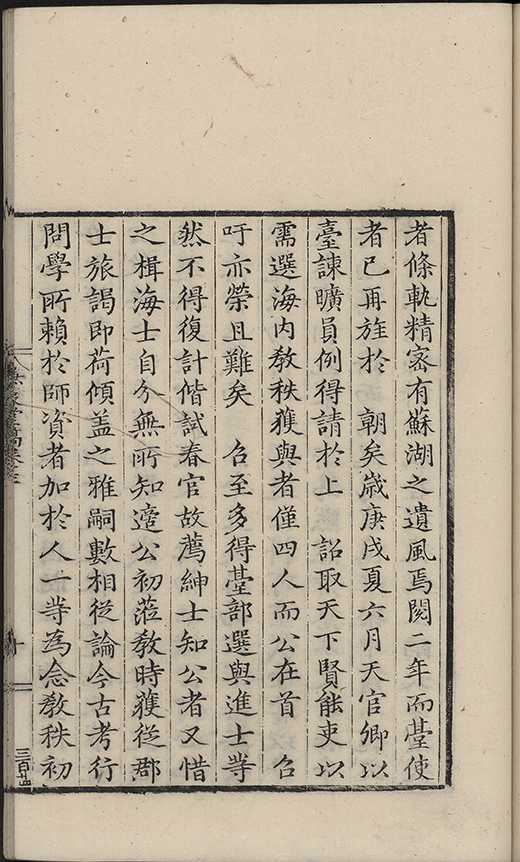 者條軌精密有蘇湖之遺風焉閱二年而臺使
者已再旌於　朝矣歲庚戌夏六月天官卿以
臺諫曠員例得請於上　詔取天下賢能吏以
需選海內敎秩獲與者僅四人而公在首　召
吁亦榮且難矣　召至多得臺部選與進士等
然不得復計偕試春官故薦紳士知公者又惜
之楫海士自分無所知適公初蒞敎時獲從郡
士旅謁即荷傾盖之雅嗣數相從論今古考行
問學所賴於師資者加於人一等為念敎秩初
三百廿四